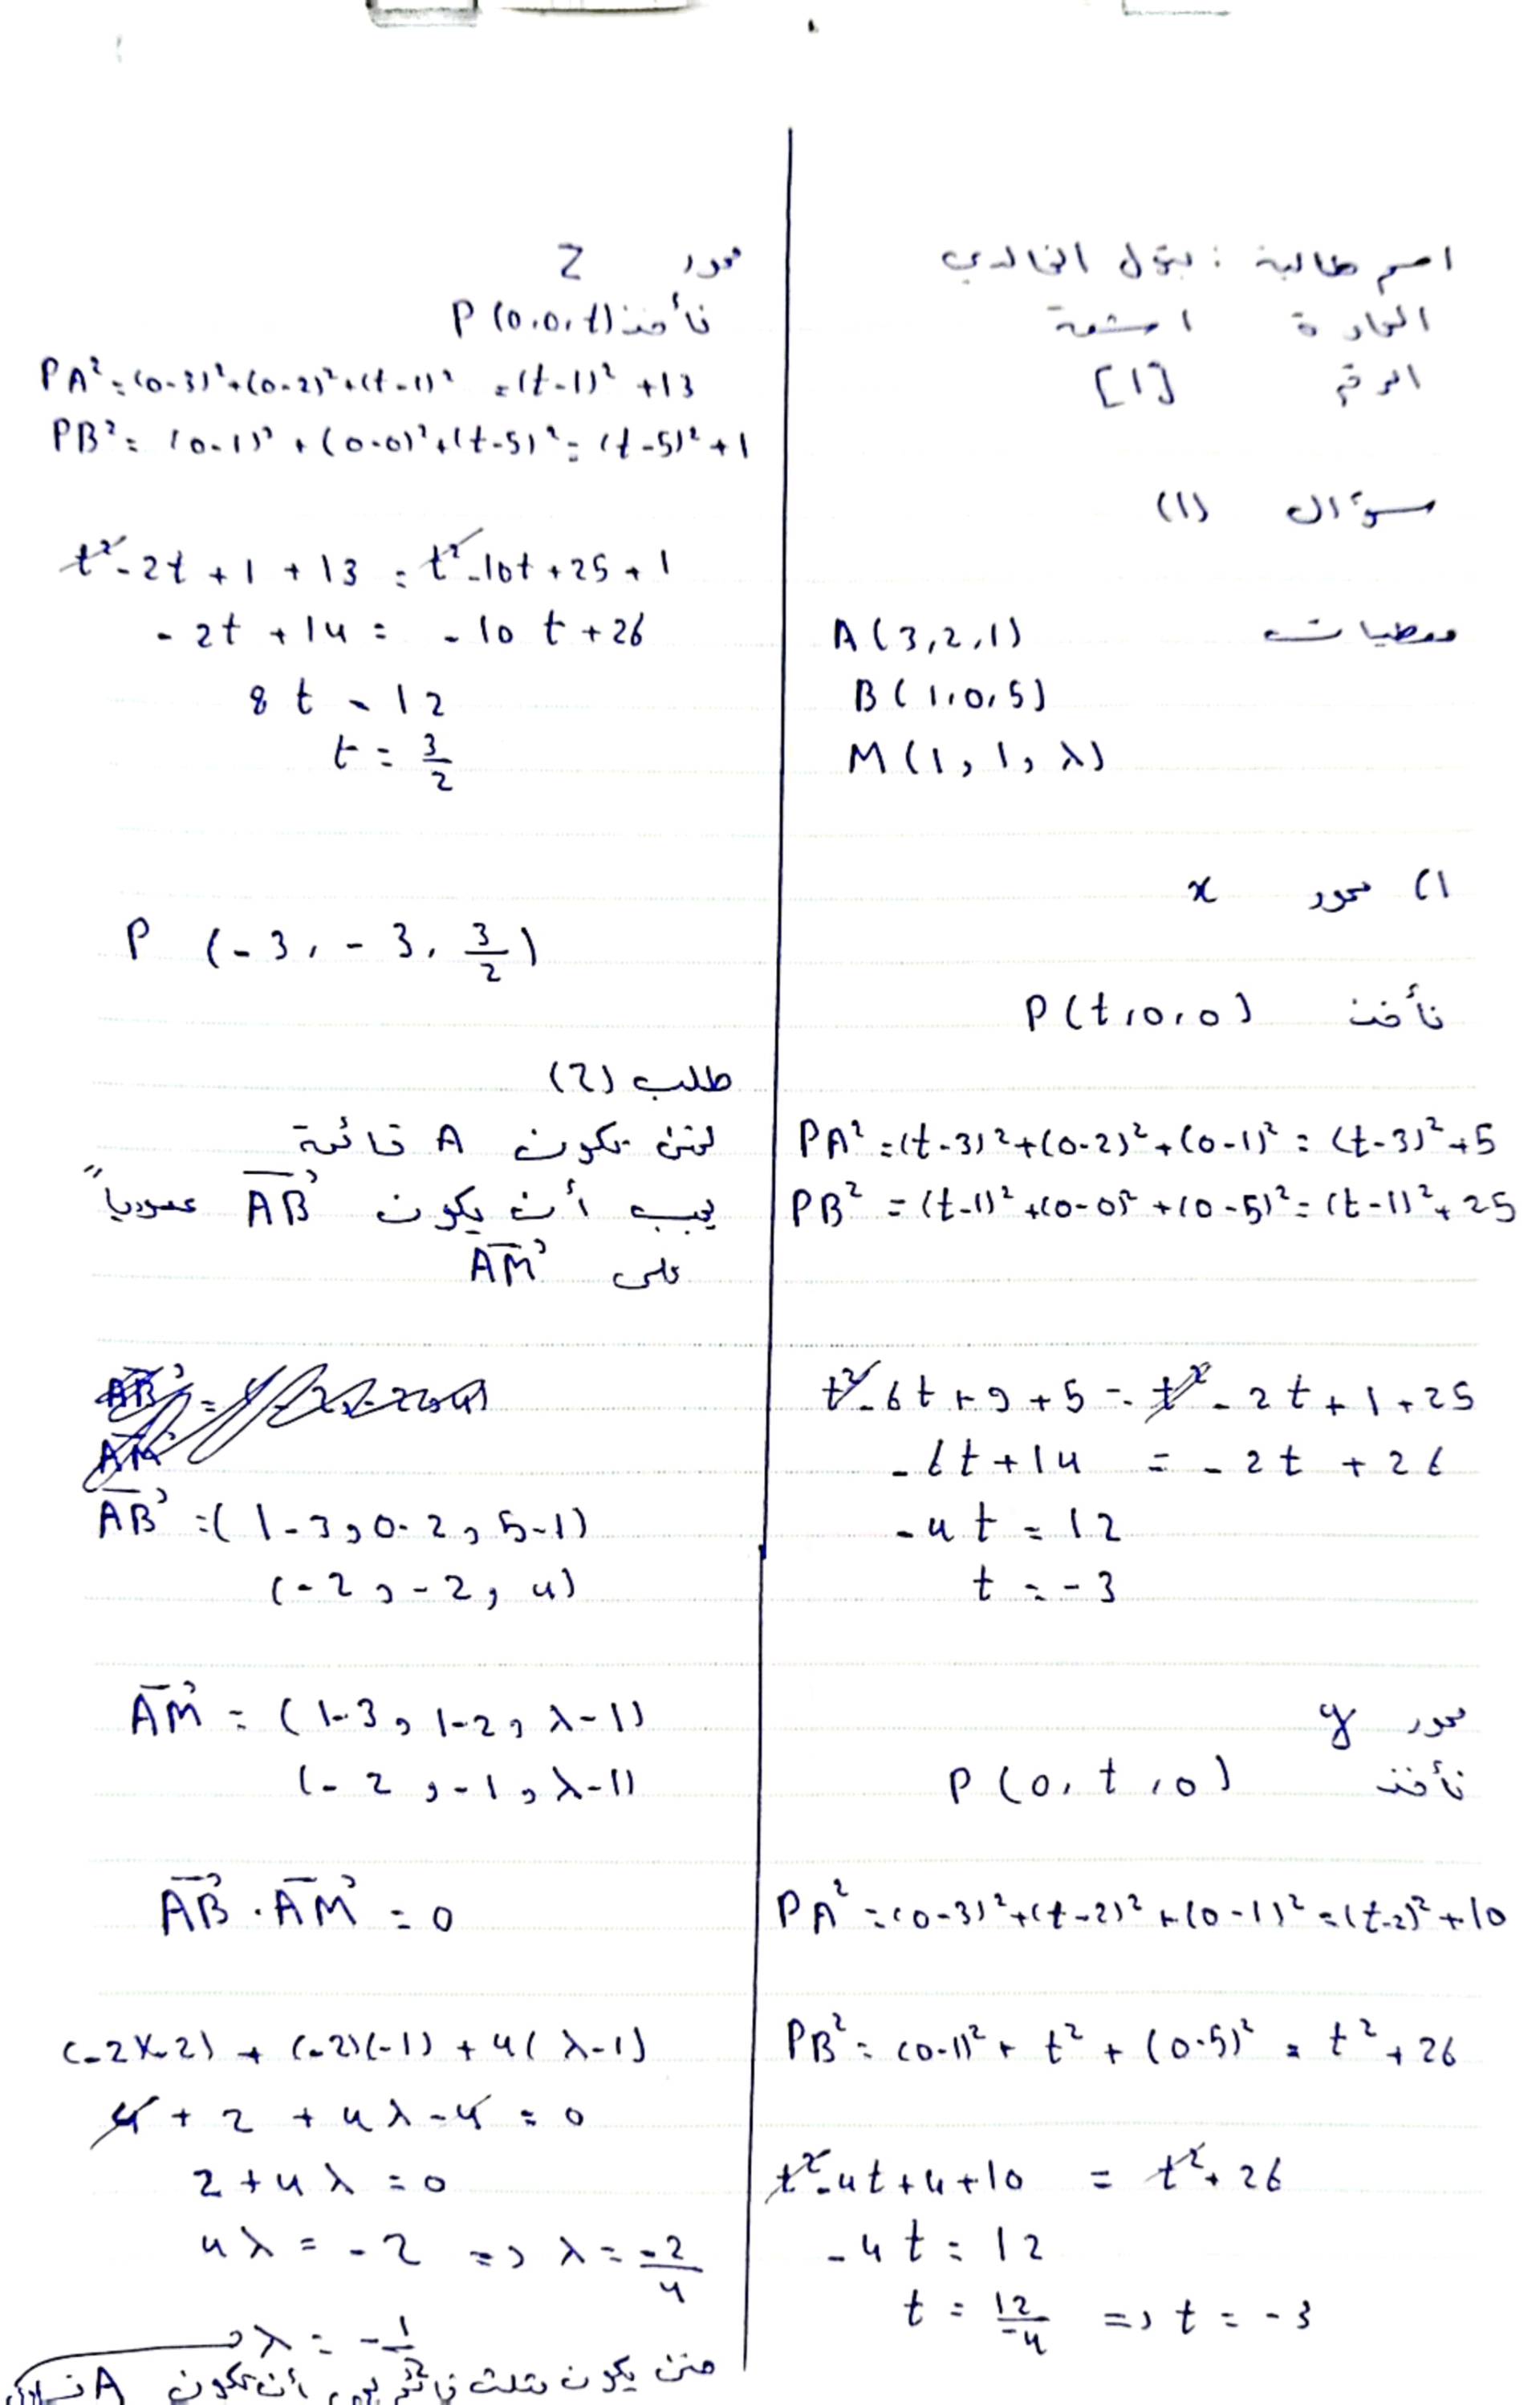 اسم طالبة : بتول الخالدي
المادة اشعة
الرقم [1]
سؤال (1)
معطيات A(3,2,1)
B(1,0,5)
M(1,1,λ)
1) محور x
نأخذ P(t,0,0)
PA² = (t-3)² + (0-2)² + (0-1)² = (t-3)² + 5
PB² = (t-1)² + (0-0)² + (0-5)² = (t-1)² + 25
t² - 6t + 9 + 5 = t² - 2t + 1 + 25
-6t + 14 = -2t + 26
-4t = 12
t = -3
محور y
نأخذ P(0,t,0)
PA² = (0-3)² + (t-2)² + (0-1)² = (t-2)² + 10
PB² = (0-1)² + t² + (0-5)² = t² + 26
t² - 4t + 4 + 10 = t² + 26
-4t = 12
t = 12/-4 => t = -3
محور Z
نأخذ P(0,0,t)
PA² = (0-3)² + (0-2)² + (t-1)² = (t-1)² + 13
PB² = (0-1)² + (0-0)² + (t-5)² = (t-5)² + 1
t² - 2t + 1 + 13 = t² - 10t + 25 + 1
-2t + 14 = -10t + 26
8t = 12
t = 3/2
P (-3, -3, 3/2)
طلب (2)
لكي يكون A قائمة
يجب أن يكون AB عمودياً
على AM
AB = (1-3, 0-2, 5-1)
(-2, -2, 4)
AM = (1-3, 1-2, λ-1)
(-2, -1, λ-1)
AB · AM = 0
(-2)(-2) + (-2)(-1) + 4(λ-1)
4 + 2 + 4λ - 4 = 0
2 + 4λ = 0
4λ = -2 => λ = -2/4
λ = -1/2
يكون أن يكون A